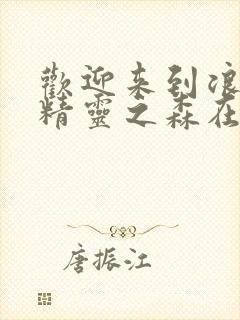 歡迎来到浪
精靈之森在
唐振江